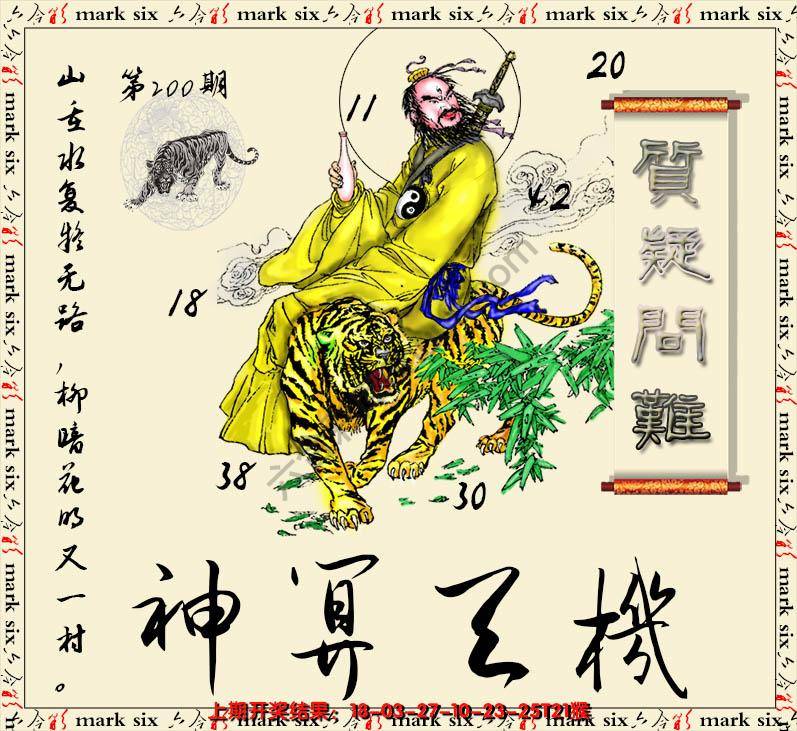 mark six mark six mark six mark six mark six
山重水复疑无路，柳暗花明又一村。
第200期
11
20
42
18
38
30
質疑問難
神算天機
上期开奖结果：18-03-27-10-23-25T21猴
mark six mark six mark six mark six mark six